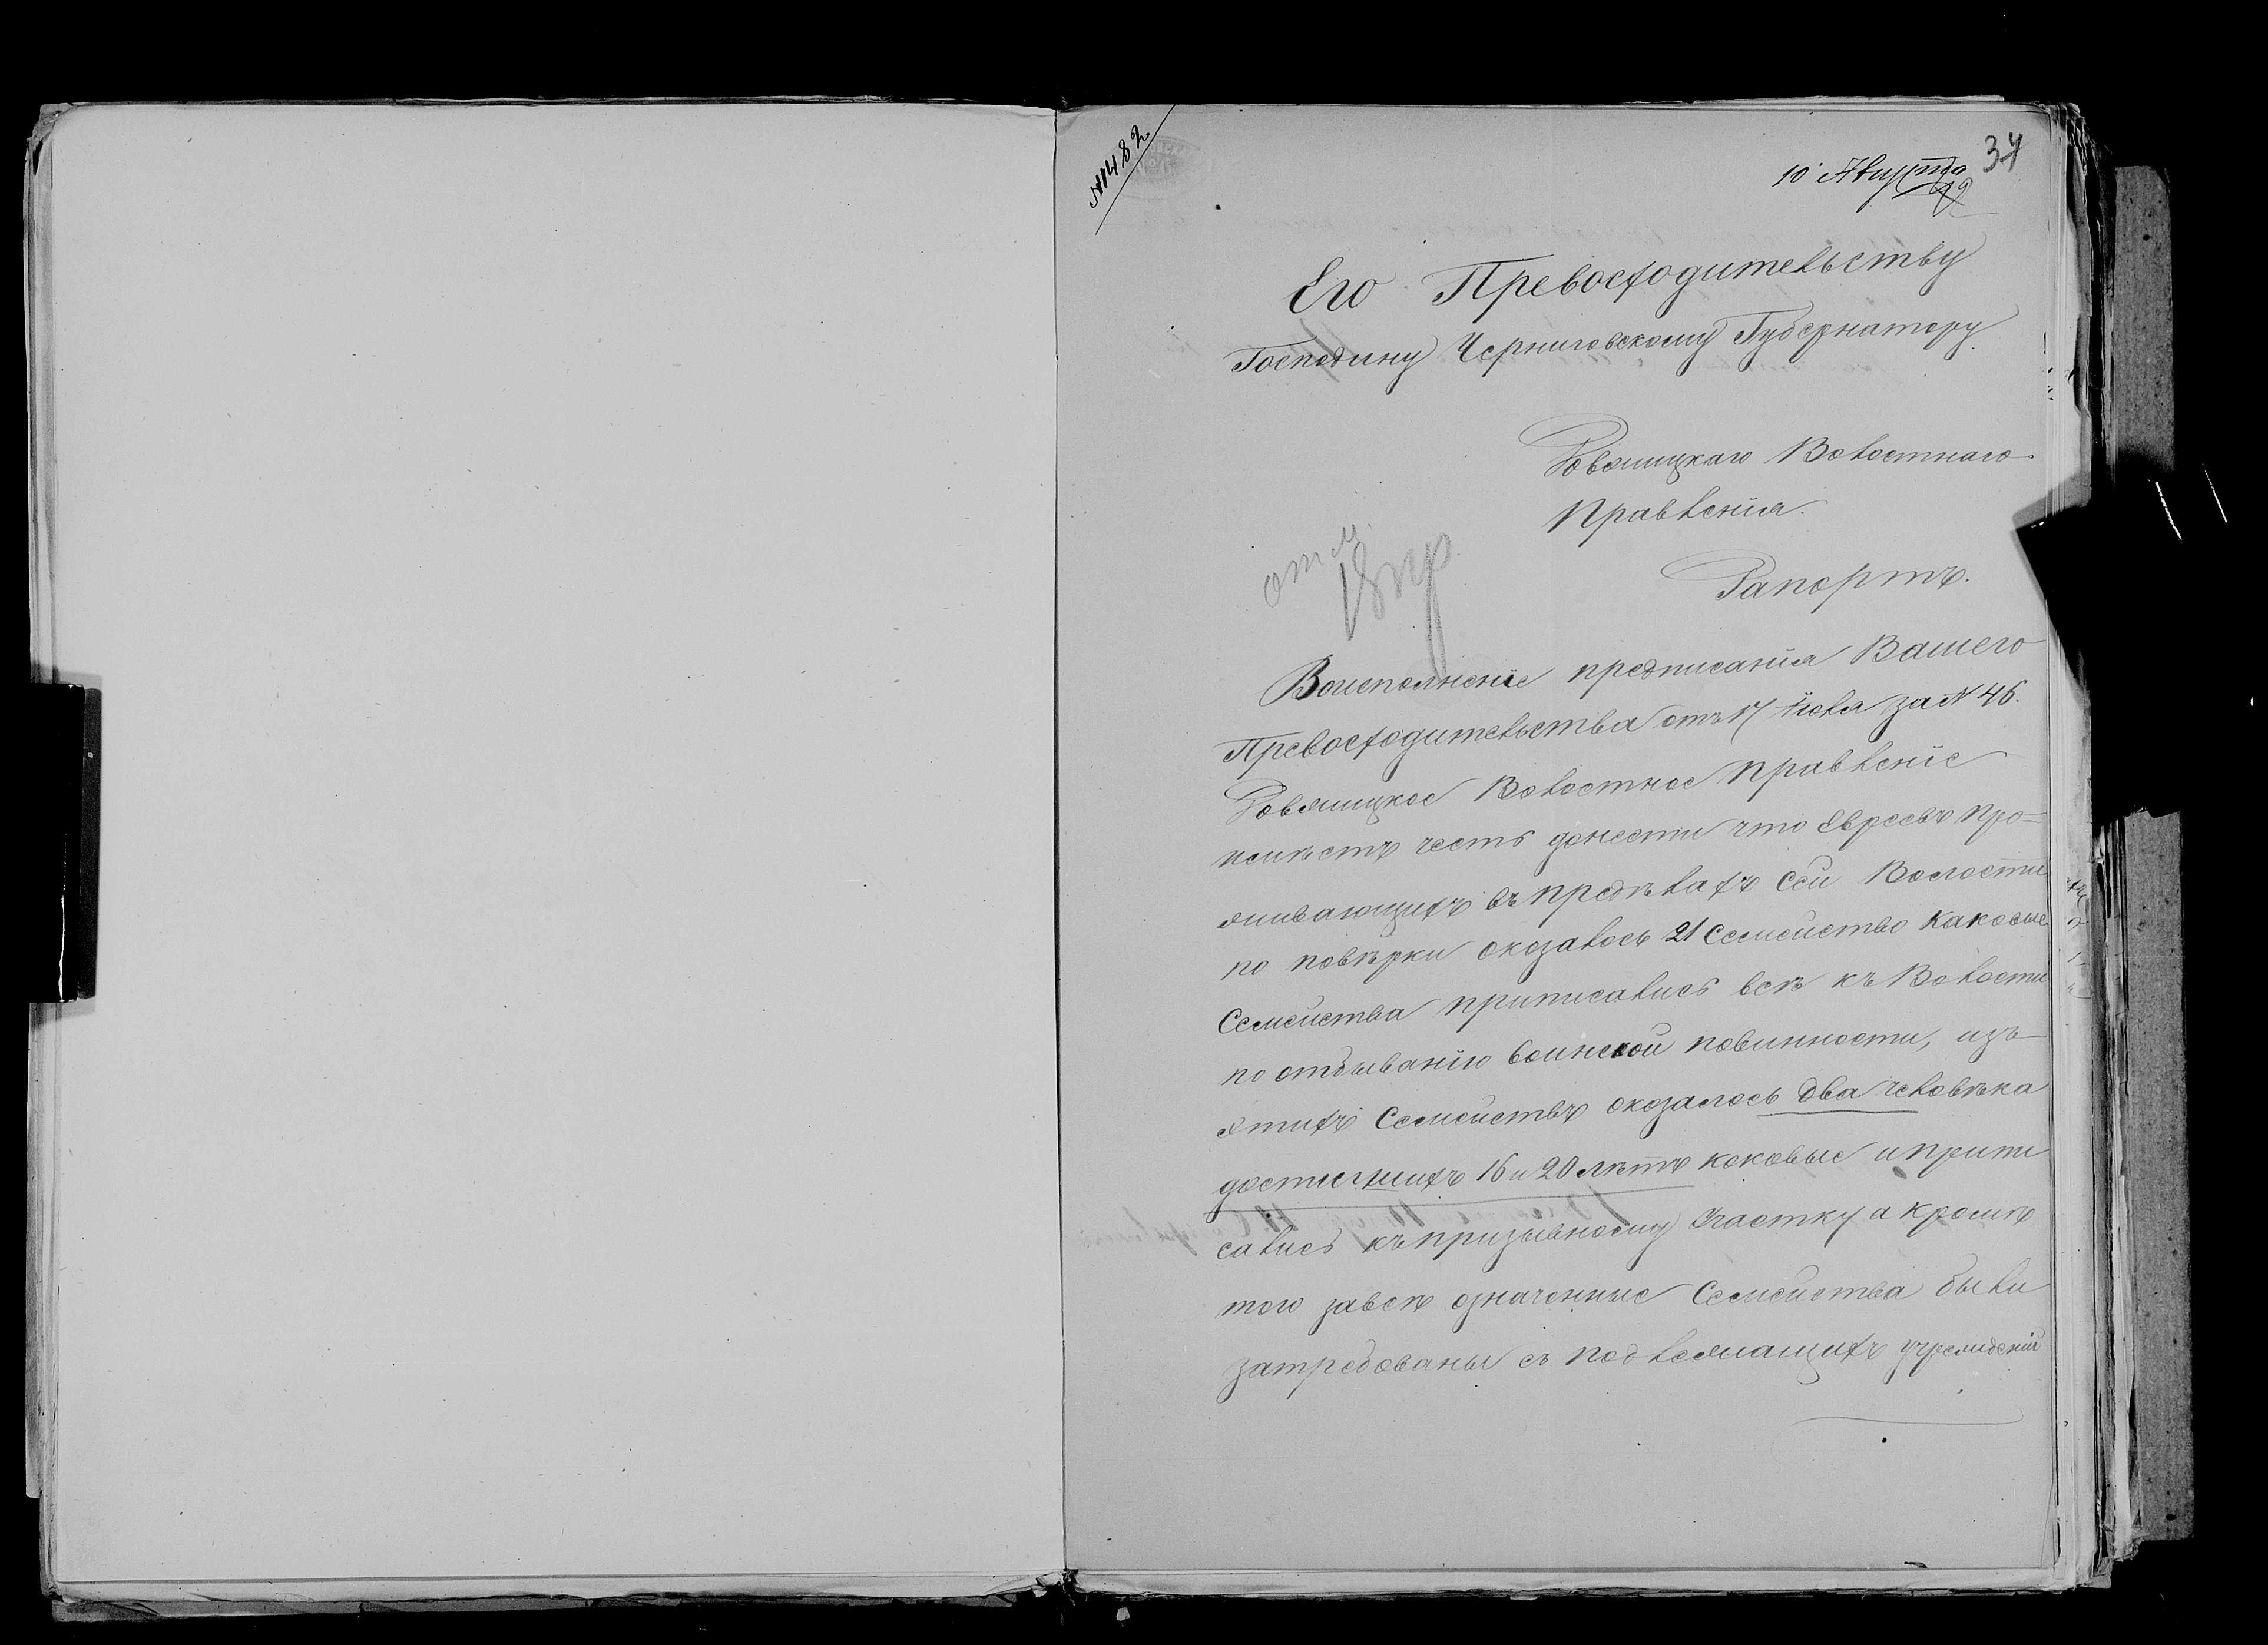 №1482
34
10 Августа
Его Превосходительству
Господину Черниговскому Губернатору
Ровжицкаго Волостнаго
Правленія.
Рапортъ.
Воисполненіе предписанія Вашего
Превосходительства отъ 17 Іюля за N 46.
Ровжицкое Волостное Правленіе
имѣетъ честь донести что Евреевъ про=
живающихъ въ предѣлахъ Сей Волости
по повѣрки оказалось 21 Семейство каковые
Семейства приписались всѣ къ Волости
по отбыванію воинской повинности, изъ
этихъ Семействъ оказалось два человѣка
достигшихъ 16 и 20 лѣтъ коковые и припи
сались къ призывному Участку а кромѣ
того завсѣ означенные Семейства были
затребованы съ подлежащихъ учрежденій